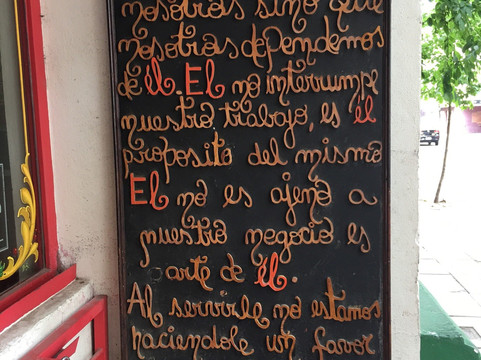 nosotras sino que
nosotras dependemos
de él. El no interrumpe
nuestro trabajo, es él
proposito del mismo
El no es ajeno a
nuestro negocio es
arte de él.
Al servirle no estamos
haciendole un favor